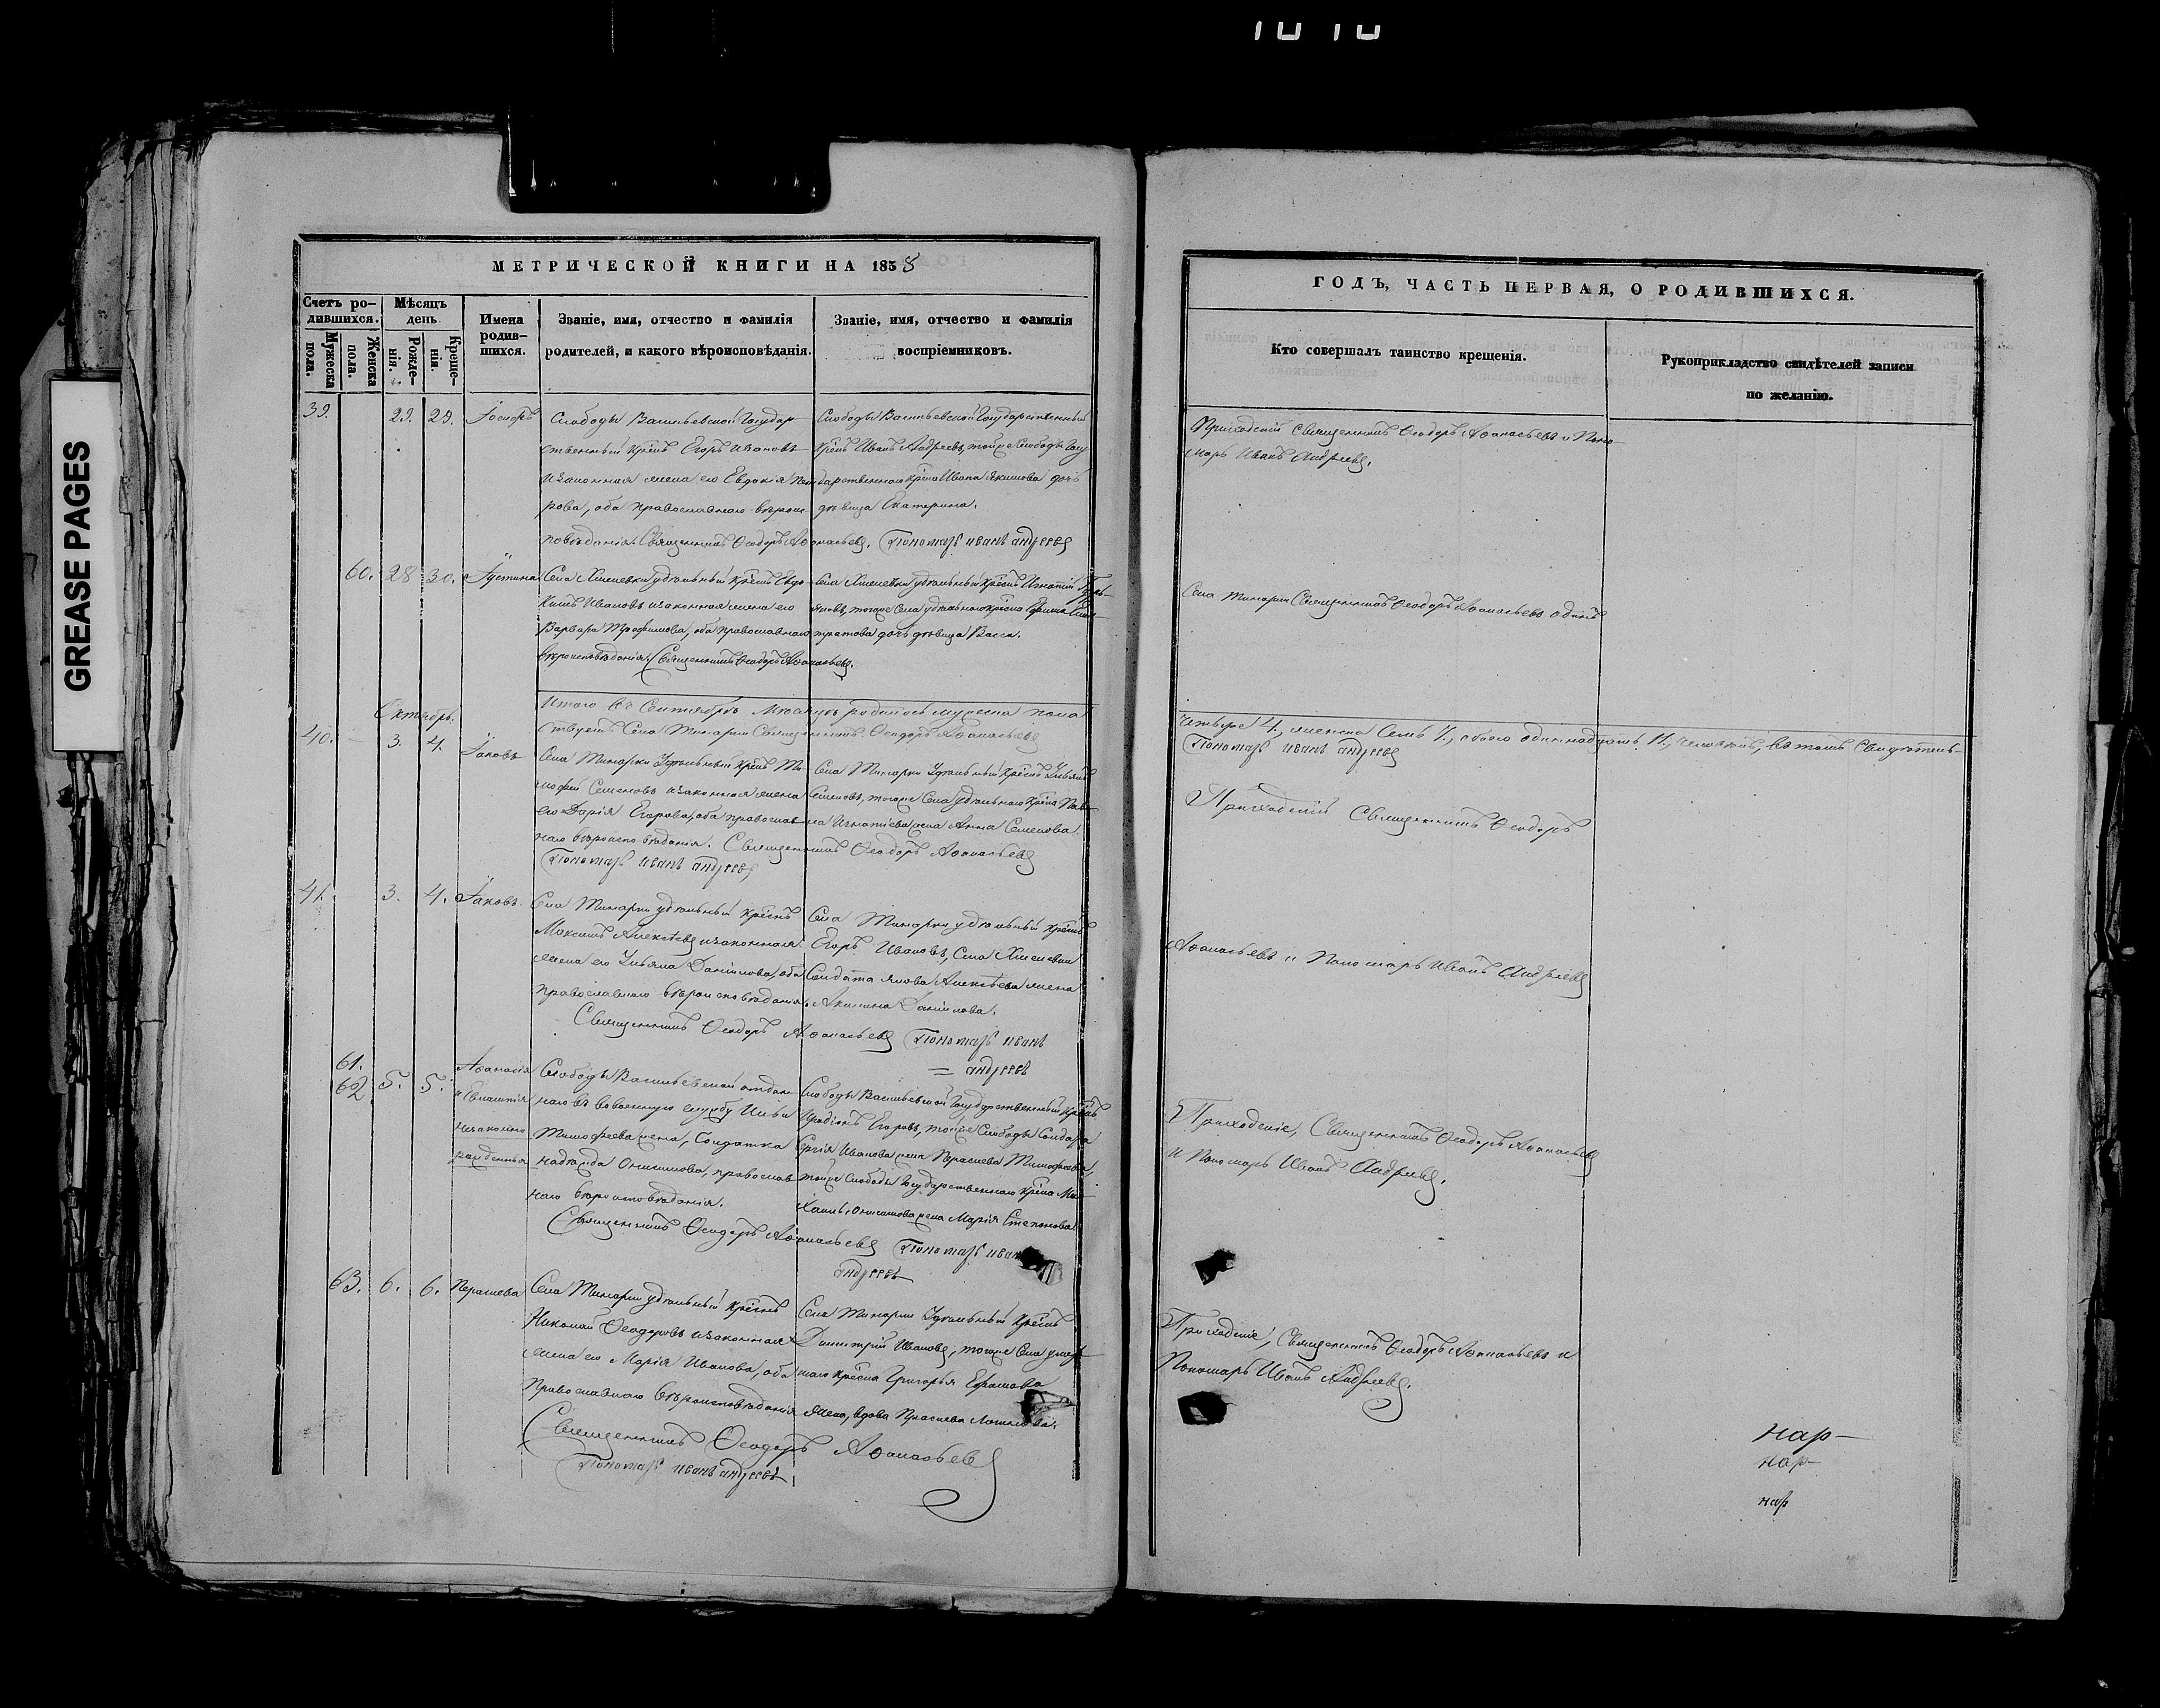 GREASE PAGES
МЕТРИЧЕСКОЙ КНИГИ НА 1858
Счетъ ро-
дившихся.
Мужеска
пола.
Женска
пола.
Мѣсяцъ
день.
Рожде-
нія.
Креще-
нія.
Имена
родив-
шихся.
Званіе, имя, отчество и фамилія
родителей, и какого вѣроисповѣданія.
Званіе, имя, отчество и фамилія
воспріемниковъ.
39. 29. 29. Іосифъ
Слободы Васильевской Государ-
ственный крѣнъ Егоръ Ивановъ
и законная жена его Евдокія
рова, оба православнаго вѣроис-
повѣданія. Священникъ Ѳеодоръ Аѳанасьевъ. Пономарь иванъ андреевъ
Слободы Васильевской Государственный
крѣнъ Иванъ Андреевъ, тойже Слободы Госу
дарственнаго крѣна Ивана Якимова дочь
дѣвица Екатерина.
60. 28 30. Іустина
Села Хмелевки удѣльный крѣнъ Евдо-
кимъ Ивановъ и законная жена его
Варвара Трофимова, оба православнаго
вѣроисповѣданія. Священникъ Ѳеодоръ Аѳанасьевъ.
Села Хмелевки удѣльный крѣнъ Игнатій
тогоже Села удѣльнаго крѣна
дочь дѣвица Васса.
Итого въ Сентябрѣ Мѣсяцѣ родилось мужеска пола
ствуетъ Села Тинарки Священникъ Ѳеодоръ Аѳанасьевъ
Октябрь.
40. 3. 4. Іаковъ
Села Тинарки Удѣльный крѣнъ Ти-
мофей Семеновъ и законная жена
его Дарія Егорова, оба православ-
наго вѣроисповѣданія. Священникъ Ѳеодоръ Аѳанасьевъ
Пономарь иванъ андреевъ
Села Тинарки Удѣльный крѣнъ
Семеновъ, тогоже Села удѣльнаго крѣна Пав-
ла Игнатіева жена Анна Семенова.
41. 3. 4. Іаковъ.
Села Тинарки удѣльный крѣнъ
Максимъ Алексѣевъ и законная
жена его Ульяна Даніилова, оба
православнаго вѣроисповѣданія.
Священникъ Ѳеодоръ Аѳанасьевъ Пономарь иванъ
= андреевъ
Села Тинарки удѣльный крѣнъ
Егоръ Ивановъ, Села Хмелевки
Солдата Якова Алексѣева жена
Акилина Даніилова.
61.
62 5. 5.
Аѳанасія
и Евлампія
незаконно
рожденныя
Слободы Васильевской отдан-
наго въ военную службу Ильи
Тимофеева жена, Солдатка
Надежда Онисимова, православ-
наго вѣроисповѣданія.
Священникъ Ѳеодоръ Аѳанасьевъ Пономарь иванъ
андреевъ
Слободы Васильевской Государственный крѣнъ
Иродіонъ Егоровъ, тойже Слободы Солдата
Сергія Иванова жена Параскева Тимофеева,
тойже Слободы Государственнаго крѣна Ми-
хаила Онисимова жена Марія Степанова.
63. 6. 6. Параскева
Села Тинарки удѣльный крѣнъ
Николай Ѳеодоровъ и законная
жена его Марія Иванова, оба
Православнаго вѣроисповѣданія
Священникъ Ѳеодоръ Аѳанасьевъ
Пономарь иванъ андреевъ
Села Тинарки Удѣльный крѣнъ
Димитрій Ивановъ, тогоже Села
наго крѣна Григорья
жена, вдова Праскева
ГОДЪ, ЧАСТЬ ПЕРВАЯ, О РОДИВШИХСЯ.
Кто совершалъ таинство крещенія.
Рукоприкладство свидѣтелей записи
по желанію.
Приходскій Священникъ Ѳеодоръ Аѳанасьевъ и Поно-
марь Иванъ Андреевъ.
Села Тинарки Священникъ Ѳеодоръ Аѳанасьевъ одинъ
четыре 4, женска Семь 7, обоего одиннадцать 11, человѣкъ, въ томъ Свидѣтель-
Пономарь иванъ андреевъ
Приходскій Священникъ Ѳеодоръ
Аѳанасьевъ и Пономарь Иванъ Андреевъ
Приходскіе, Священникъ Ѳеодоръ Аѳанасьевъ
и Пономарь Иванъ Андреевъ.
Приходскіе, Священникъ Ѳеодоръ Аѳанасьевъ и
Пономарь Иванъ Андреевъ.
нар-
нар-
нар